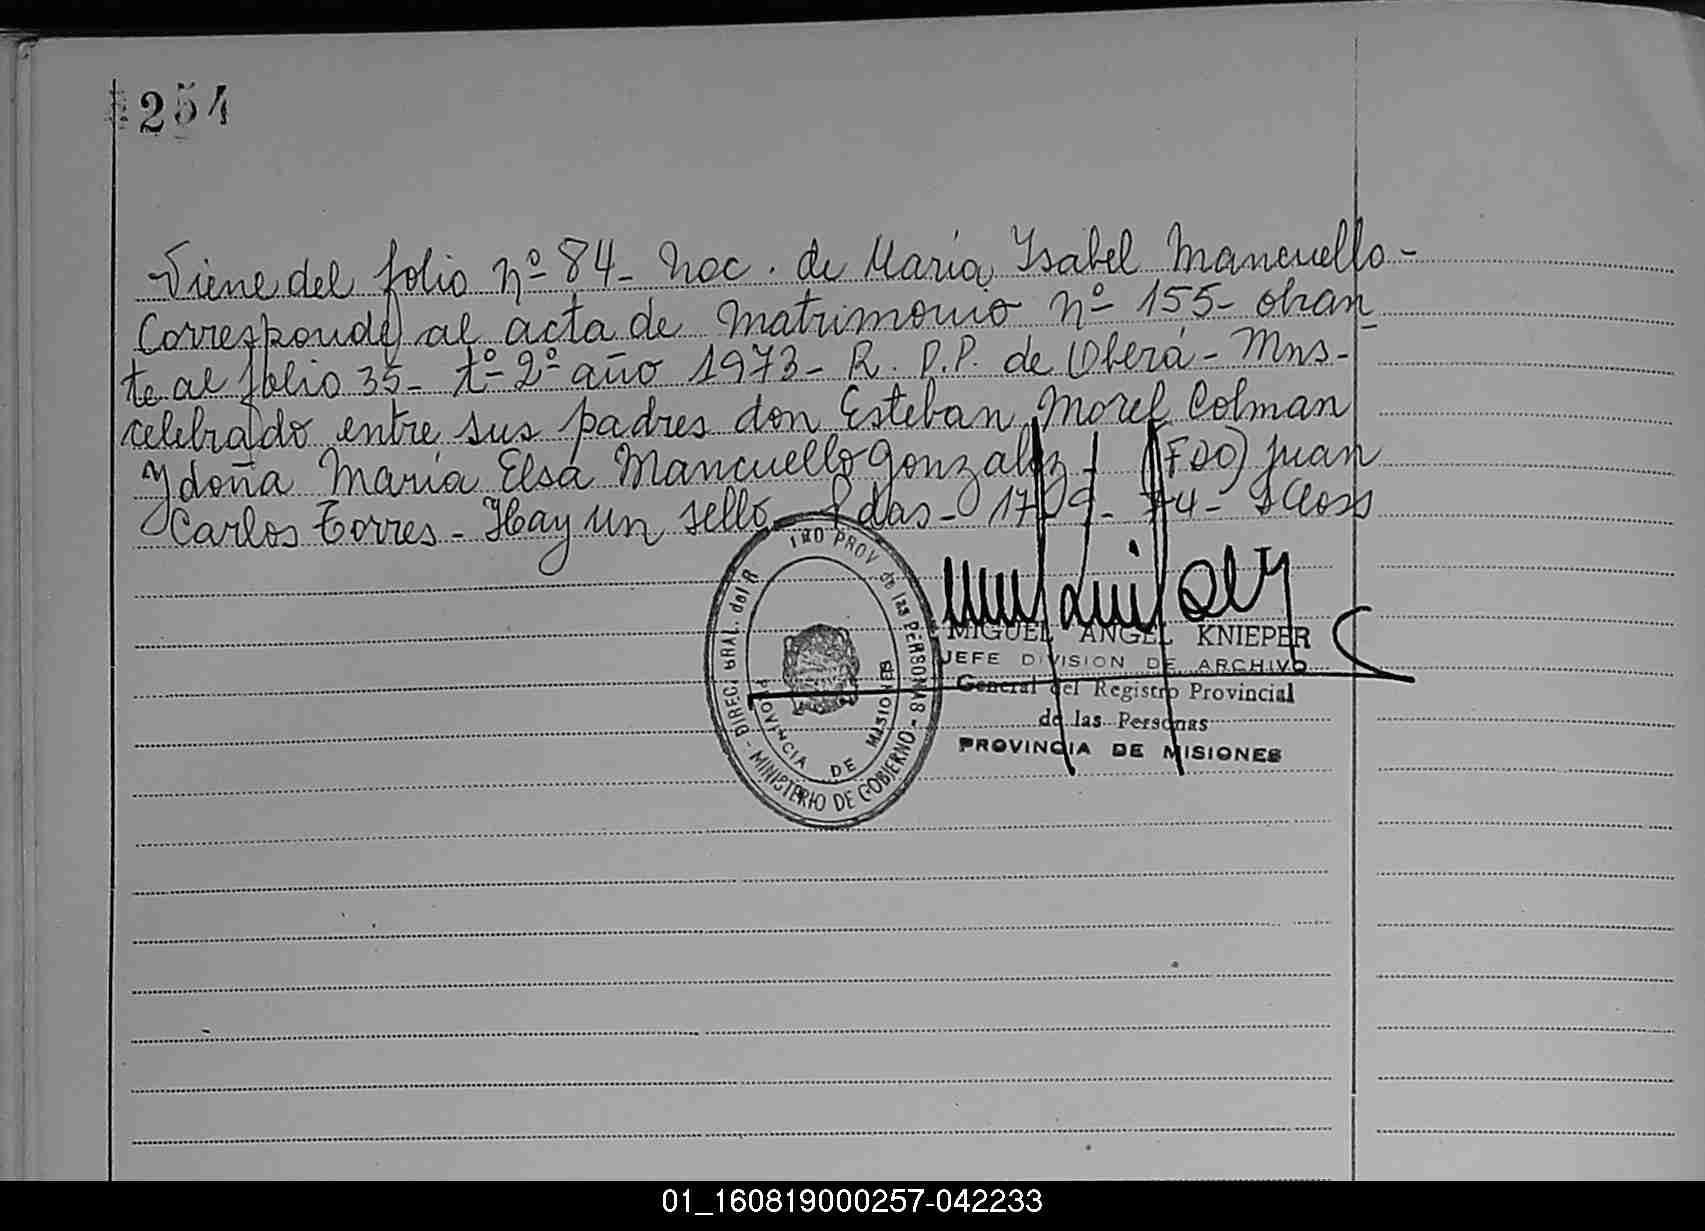 254
Viene del folio nº 84- Nac. de María Ysabel Mancuello-
Corresponde al acta de Matrimonio nº 155- obran
te al folio 35- tº 2º año 1973- R. P.P. de Oberá- Mns-
celebrado entre sus padres don Esteban Morel Colman
y doña María Elsa Mancuello Gonzalez- (FDO) Juan
Carlos Torres- Hay un sello. Pdas- 17/09- 74-
DIREC. GRAL. del R TRO PROV de las PERSONAS - MINISTERIO DE GOBIERNO -
PROVINCIA DE MISIONES
MIGUEL ANGEL KNIEPER
JEFE DIVISION DE ARCHIVO
General del Registro Provincial
de las Personas
PROVINCIA DE MISIONES
01_160819000257-042233